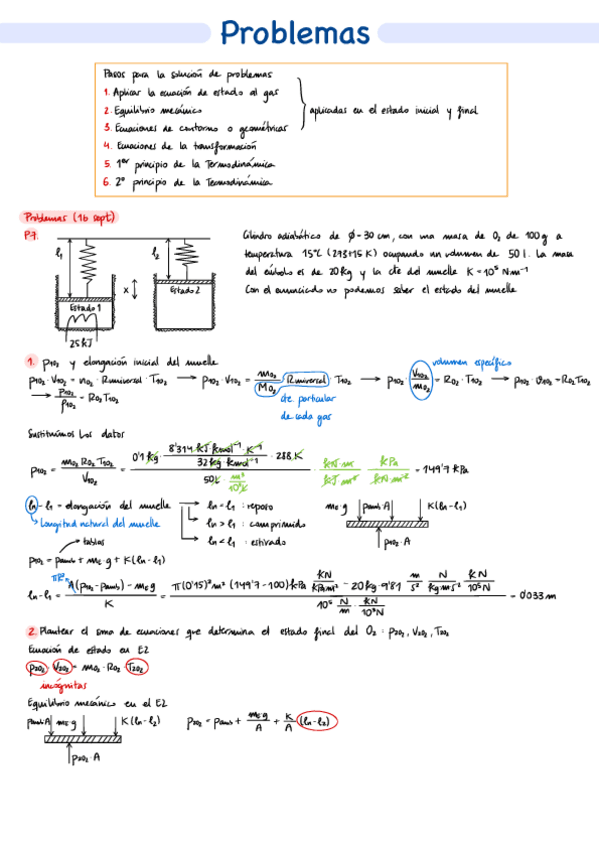 Problemas
Pasos para la solución de problemas
1. Aplicar la ecuación de estado al gas
2. Equilibrio mecánico
3. Ecuaciones de contorno o geométricas
aplicadas en el estado inicial y final
4. Ecuaciones de la transformación
5. 1er principio de la Termodinámica
6. 2º principio de la Termodinámica
Problemas (16 sept)
P.7.
l₁
l₂
x
Estado 1
Estado 2
25 kJ
Cilindro adiabático de ϕ = 30 cm, con una masa de O₂ de 100 g a
temperatura 15ºC (273+15 K) ocupando un volumen de 50 l. La masa
del émbolo es de 20 kg y la cte del muelle K = 10⁵ N·m⁻¹
Con el enunciado no podemos saber el estado del muelle
1. p₁O₂ y elongación inicial del muelle
volumen específico
p₁O₂ · V₁O₂ = nO₂ · Runiversal · T₁O₂ → p₁O₂ · V₁O₂ = mO₂/MO₂ Runiversal · T₁O₂ → p₁O₂ · V₁O₂/mO₂ = RO₂ · T₁O₂ → p₁O₂ · υ₁O₂ = RO₂T₁O₂
→ p₁O₂/ρ₁O₂ = RO₂T₁O₂
cte particular
de cada gas
Sustituimos los datos
p₁O₂ = mO₂ RO₂ T₁O₂ / V₁O₂ = 0'1 kg · 8'314 kJ kmol⁻¹ K⁻¹ / 32 kg kmol⁻¹ · 288 K / 50 l · m³/10³l · kN·m/kJ m² · kPa/kN·m⁻² = 149'7 kPa
ln - l₁ = elongación del muelle → ln = l₁ : reposo
Longitud natural del muelle
→ ln > l₁ : comprimido
→ ln < l₁ : estirado
mE g pambA K(ln-l₁)
p₁O₂·A
tablas
p₁O₂ = pamb + mE g + K(ln-l₁)
πR²
ln-l₁ = A(p₁O₂ - pamb) - mE g / K = π(0'15)² m² (149'7-100) kPa kN/kPa m² - 20 kg · 9'81 m/s² N/kg m s⁻² kN/10³N / 10⁵ N/m · kN/10³N = 0'033 m
2. Plantear el sma de ecuaciones que determina el estado final del O₂ : p₂O₂, V₂O₂, T₂O₂
Ecuación de estado en E2
p₂O₂ · V₂O₂ = mO₂ · RO₂ · T₂O₂
incógnitas
Equilibrio mecánico en el E2
pambA mE g K(ln-l₂)
p₂O₂ = pamb + mE g/A + K/A (ln-l₂)
p₂O₂·A